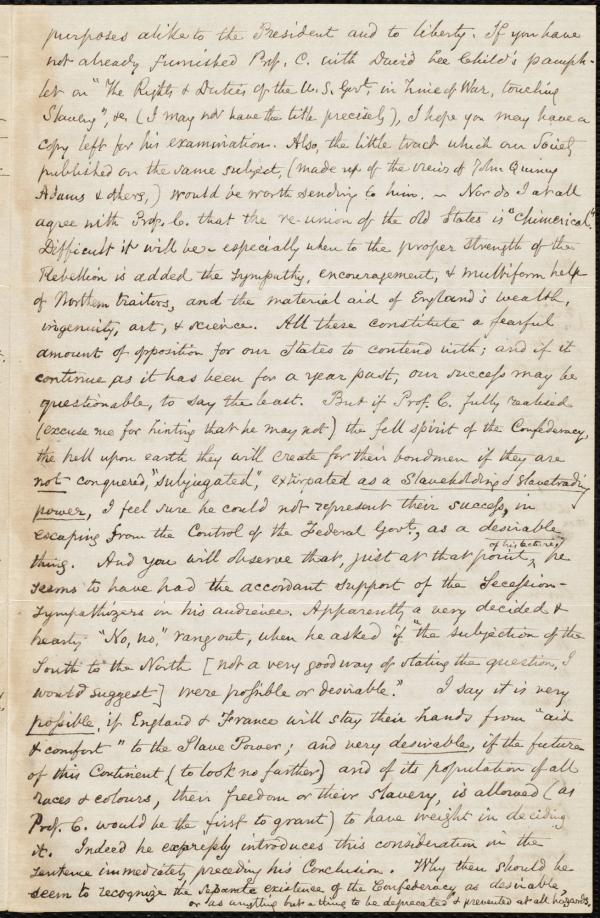 purposes alike to the President and to liberty. If you have
not already furnished Prof. C. with David Lee Child's pamph-
let on "The Rights & Duties of the U.S. Govt. in Time of War, touching
Slavery", &c. (I may not have the title precisely), I hope you may have a
copy left for his examination. Also, the little tract which our Society
published on the same subject, (made up of the views of John Quincy
Adams & others,) would be worth sending to him. – Nor do I at all
agree with Prof. C. that the re-union of the old States is "chimerical".
Difficult it will be – especially when to the proper strength of the
Rebellion is added the sympathy, encouragement, & multiform help
of Northern traitors, and the material aid of England's wealth,
ingenuity, art, & science. All these constitute a fearful
amount of opposition for our States to contend with; and if it
continue, as it has been for a year past, our success may be
questionable, to say the least. But if Prof. C. fully realised
(excuse me for hinting that he may not) the fell spirit of the Confederacy,
the hell upon earth they will create for their bondmen if they are
not conquered, "subjugated", extirpated as a Slaveholding & slavetrading
power, I feel sure he could not represent their success, in
escaping from the Control of the Federal Govt., as a desirable
thing. And you will observe that, just at that point of his lecture, he
seems to have had the accordant support of the Secession-
sympathizers in his audience. Apparently a very decided &
hearty "No, no," rang out, when he asked if "the subjection of the
South to the North [not a very good way of stating the question, I
would suggest] were possible or desirable." I say it is very
possible, if England & France will stay their hands from "aid
& comfort" to the Slave Power; and very desirable, if the future
of this Continent (to look no farther) and of its population of all
races & colours, their freedom or their slavery, is allowed (as
Prof. C. would be the first to grant) to have weight in deciding
it. Indeed he expressly introduces this consideration in the
sentence immediately preceding his Conclusion. Why then should he
seem to recognize the separate existence of the Confederacy as desirable,
or as anything but a thing to be deprecated & prevented at all hazards.